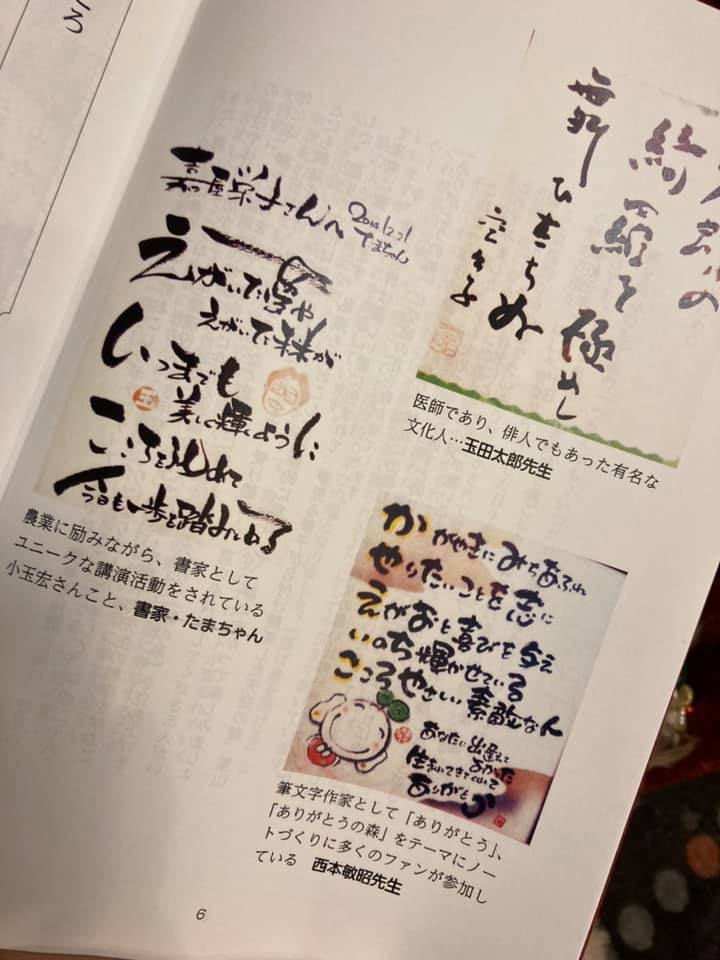 ろ
嘉屋栄子さんへ
たまちゃん
えがいた夢や
えがいた未来が
いつまでも
美しく輝くように
こころを込めて
今日も一歩を踏みしめる
農業に励みながら、書家として
ユニークな講演活動をされている
小玉宏さんこと、書家・たまちゃん
を極めし
ひおちぬ
医師であり、俳人でもあった有名な
文化人…玉田太郎先生
かがやきにみちあふれ
やりたいことを志に
えがおと喜びを与え
いのち輝かせている
こころやさしい素敵な人
あなたに出逢えて
よかった
生まれてきてくれて
ありがとう
筆文字作家として「ありがとう」、
「ありがとうの森」をテーマにノー
トづくりに多くのファンが参加し
ている 西本敏昭先生
6